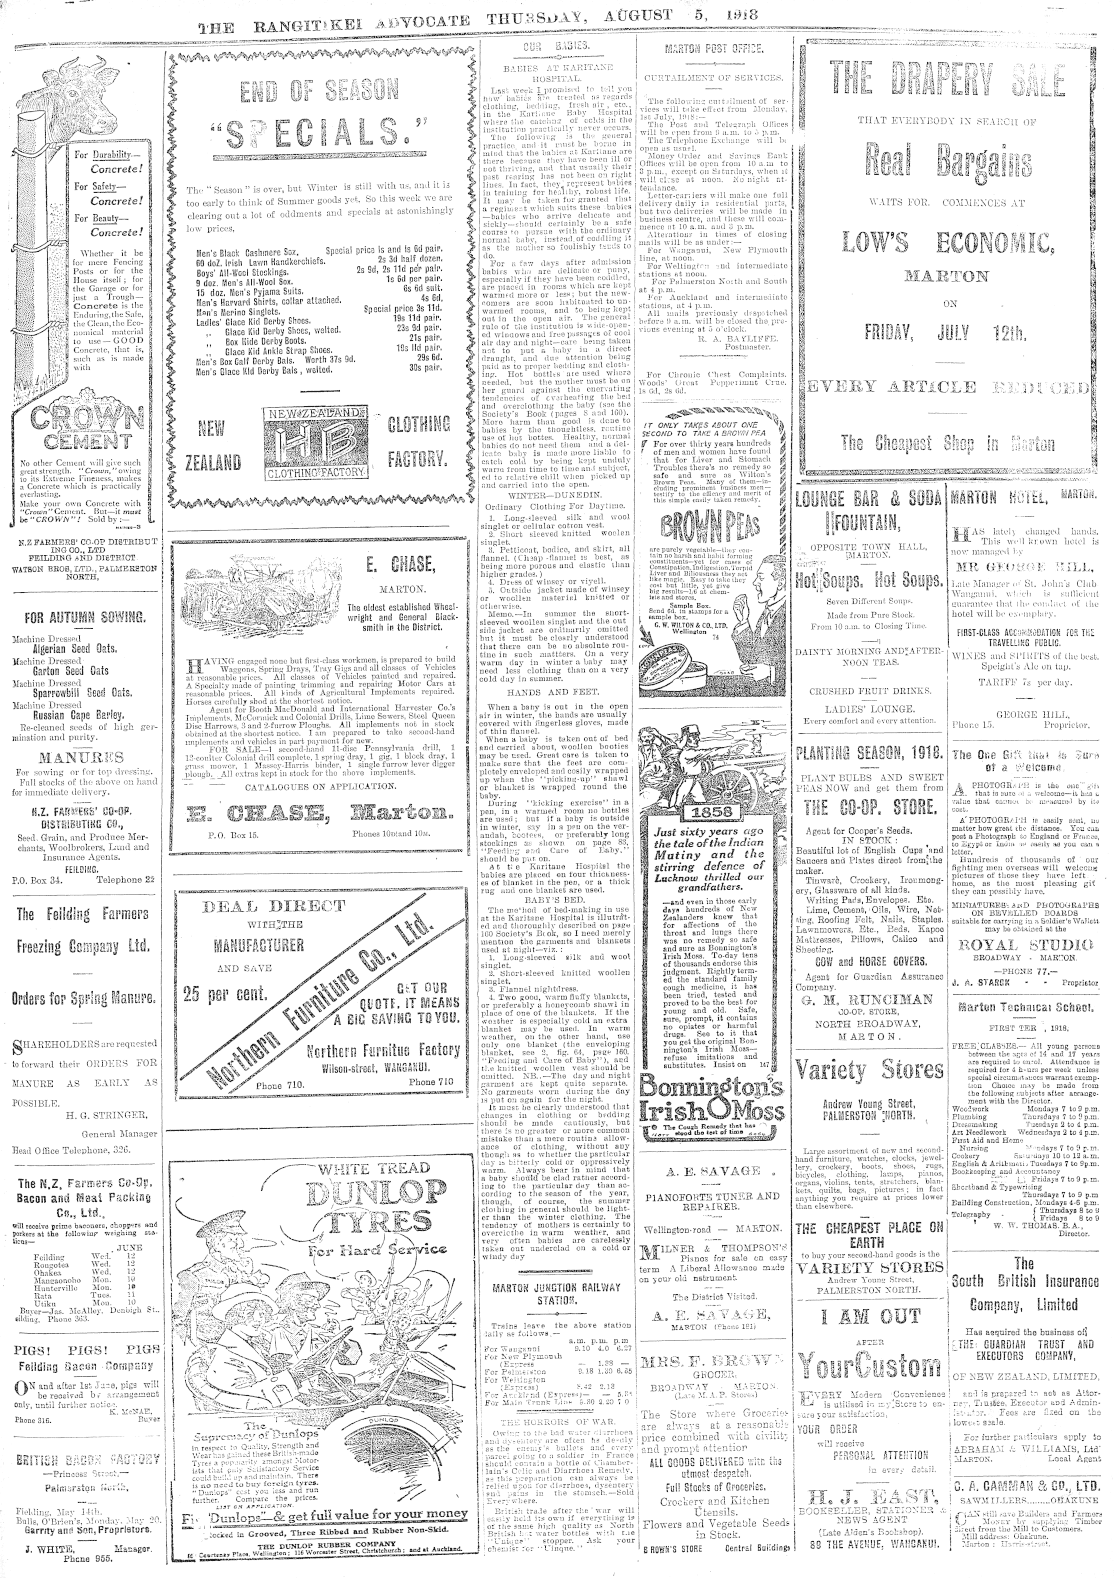 THE RANGITIKEI ADVOCATE THURSDAY, AUGUST 5, 1918
For Durability—
Concrete!
For Safety—
Concrete!
For Beauty—
Concrete!
Whether it be
for mere Fencing
Posts or for the
House itself; for
the Garage or for
just a Trough—
Concrete is the
Enduring, the Safe,
the Clean, the Eco-
nomical material
to use—GOOD
Concrete, that is,
such as is made
with
CROWN
CEMENT
No other Cement will give such
great strength. "Crown," owing
to its Extreme Fineness, makes
a Concrete which is practically
everlasting.
Make your own Concrete with
"Crown" Cement. But—it must
be "CROWN"! Sold by:—
N.Z FARMERS' CO-OP DISTRIBUT
ING CO., LTD
FEILDING AND DISTRICT
WATSON BROS, LTD., PALMERSTON
NORTH,
FOR AUTUMN SOWING.
Machine Dressed
Algerian Seed Oats.
Machine Dressed
Garton Seed Oats
Machine Dressed
Sparrowbill Seed Oats.
Machine Dressed
Russian Cape Barley.
Re-cleaned seeds of high ger-
mination and purity.
MANURES
For sowing or for top dressing.
Full stocks of the above on hand
for immediate delivery.
N.Z. FARMERS' CO-OP.
DISTRIBUTING CO.,
Seed, Grain, and Produce Mer-
chants, Woolbrokers, Land and
Insurance Agents.
FEILDING.
P.O. Box 34. Telephone 22
The Feilding Farmers
Freezing Company Ltd.
Orders for Spring Manure.
SHAREHOLDERS are requested
to forward their ORDERS FOR
MANURE AS EARLY AS
POSSIBLE.
H. G. STRINGER,
General Manager
Head Office Telephone, 326.
The N.Z, Farmers Co-Op.
Bacon and Meat Packing
Co., Ltd.,
will receive prime baconers, choppers and
porkers at the following weighing sta-
tions—
JUNE
Feilding Wed. 12
Rongotea Wed. 12
Ohakea Wed. 12
Mangaonoho Mon. 10
Hunterville Mon. 10
Rata Tues. 11
Utiku Mon. 10
Buyer—Jas. McAlley, Denbigh St.,
eilding. Phone 363.
PIGS! PIGS! PIGS
Feilding Bacon Company
ON and after 1st June, pigs will
be received by arrangement
only, until further notice.
K. McNAE,
Phone 316. Buyer
BRITISH BACON FACTORY
—Princess Street,—
Palmerston North.
Feilding, May 14th.
Bulls, O'Brien's, Monday, May 20.
Garrity and Son, Propristors.
J. WHITE, Manager.
Phone 955.
END OF SEASON
"SPECIALS."
The "Season" is over, but Winter is still with us, and it is
too early to think of Summer goods yet. So this week we are
clearing out a lot of oddments and specials at astonishingly
low prices,
Men's Black Cashmere Sox, Special price is and is 6d pair.
60 doz. Irish Lawn Handkerchiefs. 2s 3d half dozen.
Boys' All-Wool Stockings. 2s 9d, 2s 11d per pair.
9 doz. Men's All-Wool Sox. 1s 6d per pair.
15 doz. Men's Pyjama Suits. 6s 6d suit.
Men's Harvard Shirts, collar attached. 4s 6d.
Men's Merino Singlets. Special price 3s 11d.
Ladies' Glace Kid Derby Shoes. 19s 11d pair.
,, Glace Kid Derby Shoes, welted. 23s 9d pair.
,, Box Kide Derby Boots. 21s pair.
,, Glace Kid Ankle Strap Shoes. 19s 11d pair.
Men's Box Calf Derby Bals. Worth 37s 9d. 29s 6d.
Men's Glace Kid Derby Bals, welted. 30s pair.
NEW
ZEALAND
NEW ZEALAND
HB
CLOTHING FACTORY.
CLOTHING
FACTORY.
E. CHASE,
MARTON.
The oldest established Wheel-
wright and General Black-
smith in the District.
HAVING engaged none but first-class workmen, is prepared to build
Waggons, Spring Drays, Tray Gigs and all classes of Vehicles
at reasonable prices. All classes of Vehicles painted and repaired.
A Specialty made of painting trimming and repairing Motor Cars at
reasonable prices. All kinds of Agricultural Implements repaired.
Horses carefully shod at the shortest notice.
Agent for Booth MacDonald and International Harvester Co.'s
Implements, McCormick and Colonial Drills, Lime Sowers, Steel Queen
Disc Harrows, 3 and 2-furrow Ploughs. All implements not in stock
obtained at the shortest notice. I am prepared to take second-hand
implements and vehicles in part payment for new.
FOR SALE—1 second-hand 11-disc Pennsylvania drill, 1
13-coulter Colonial drill complete, 1 spring dray, 1 gig, 1 block dray, 1
grass mower, 1 Massey-Harris binder, 1 single furrow lever digger
plough. All extras kept in stock for the above implements.
CATALOGUES ON APPLICATION.
E. CHASE, Marton.
P.O. Box 15. Phones 10n and 10m.
DEAL DIRECT
WITH THE
MANUFACTURER
AND SAVE
25 per cent.
Northern Furniture Co., Ltd.
GET OUR
QUOTE, IT MEANS
A BIG SAVING TO YOU.
Northern Furnitue Factory
Wilson-street, WANGANUI.
Phone 710. Phone 710
WHITE TREAD
DUNLOP
TYRES
For Hard Service
DUNLOP
The
Supremacy of Dunlops
in respect to Quality, Strength and
Wear has gained these British-made
Tyres a popularity amongst Motor-
ists that only Satisfactory Service
could build up and maintain. There
is no need to buy foreign tyres.
"Dunlops" cost you less and run
further. Compare the prices.
LIST ON APPLICATION.
Fit 'Dunlops'—& get full value for your money
Stocked in Grooved, Three Ribbed and Rubber Non-Skid.
THE DUNLOP RUBBER COMPANY
Courtenay Place, Wellington; 116 Worcester Street, Christchurch; and at Auckland.
OUR BABIES.
BABIES AT KARITANE
HOSPITAL.
Last week I promised to tell you
how babies are treated as regards
clothing, bedding, fresh air, etc.,
in the Karitane Baby Hospital
where the catching of colds in the
institution practically never occurs.
The following is the general
practice, and it must be borne in
mind that the babies at Karitane are
there because they have been ill or
not thriving, and that usually their
past rearing has not been on right
lines. In fact, they represent babies
in training for healthy, robust life.
It may be taken for granted that
a regimen which suits these babies
—babies who arrive delicate and
sickly—should certainly be a safe
course to pursue with the ordinary
normal baby, instead of coddling it
as the mother so foolishly tends to
do.
For a few days after admission
babies who are delicate or puny,
especially if they have been coddled,
are placed in rooms which are kept
warmed more or less; but the new-
comers are soon habituated to un-
warmed rooms, and to being kept
out in the open air. The general
rule of the institution is wide-open-
ed windows and free passages of cool
air day and night—care being taken
not to put a baby in a direct
draught, and due attention being
paid as to proper bedding and cloth-
ing. Hot bottles are used where
needed, but the mother must be on
her guard against the enervating
tendencies of overheating the bed
and overclothing the baby (see the
Society's Book (pages 8 and 160).
More harm than good is done to
babies by the thoughtless, routine
use of hot bottles. Healthy, normal
babies do not need them and a del-
icate baby is made more liable to
catch cold by being kept unduly
warm from time to time and subject,
ed to relative chill when picked up
and carried into the open.
WINTER—DUNEDIN.
Ordinary Clothing For Daytime.
1. Long-sleeved silk and wool
singlet or cellular cotton vest.
2. Short sleeved knitted woollen
singlet.
3. Petticoat, bodice, and skirt, all
flannel. (Cheap flannel is best, as
being more porous and elastic than
higher grades.)
4. Dress of winsey or viyell.
5. Outside jacket made of winsey
or woollen material knitted or
otherwise.
Memo.—In summer the short-
sleeved woollen singlet and the out
side jacket are ordinarily omitted
but it must be clearly understood
that there can be no absolute rou-
tine in such matters. On a very
warm day in winter a baby may
need less clothing than on a very
cold day in summer.
HANDS AND FEET.
When a baby is out in the open
air in winter, the hands are usually
covered with fingerless gloves, made
of thin flannel.
When a baby is taken out of bed
and carried about, woollen booties
may be used. Great care is taken to
make sure that the feet are com-
pletely enveloped and easily wrapped
up when the "picking-up" shawl
or blanket is wrapped round the
baby.
During "kicking exercise" in a
pen, in a warmed room no booties
are used; but if a baby is outside
in winter, say in a pen on the ver-
andah, bootees, or preferably long
stockings as shown on page 83,
"Feeding and Care of Baby,"
should be put on.
At the Karitane Hospital the
babies are placed on four thickness-
es of blanket in the pen, or a thick
rug and one blanket are used.
BABY'S BED.
The method of bed-making in use
at the Karitane Hospital is illustrat-
ed and thoroughly described on page
160 Society's Book, so I need merely
mention the garments and blankets
used at night—viz.:
1. Long-sleeved silk and wool
singlet.
2. Short-sleeved knitted woollen
singlet.
3. Flannel nightdress.
4. Two good, warm fluffy blankets,
or preferably a honeycomb shawl in
place of one of the blankets. If the
weather is especially cold an extra
blanket may be used. In warm
weather, on the other hand, use
only one blanket (the enveloping
blanket, see 2, fig. 64, page 160.
"Feeding and Care of Baby"), and
the knitted woollen vest should be
omitted. NB.—The day and night
garment are kept quite separate.
No garments worn during the day
is put on again for the night.
It must be clearly understood that
changes in clothing or bedding
should be made cautiously, but
there is no greater or more common
mistake than a mere routine allow-
ance of clothing, without any
though as to whether the particular
day is bitterly cold or oppressively
warm. Always bear in mind that
a baby should be clad rather accord-
ing to the particular day than ac-
cording to the season of the year,
though, of course, the summer
clothing in general should be light-
er than the winter clothing. The
tendency of mothers is certainly to
overclothe in warm weather, and
very often babies are carelessly
taken out underclad on a cold or
windy day
MARTON JUNCTION RAILWAY
STATION.
Trains leave the above station
daily as follows.—
a.m. p.m. p.m
For Wanganui 9.10 4.0 6.27
For New Plymouth
(Express — 1.38 —
For Palmerston 9.18 1.30 6.35
For Wellington
(Express) 8.42 2.13
For Auckland (Express)— —
For Main Trunk Line 5.30 2.20 7 0
THE HORRORS OF WAR.
Owing to the bad water diarrhoea
and dysentery are often as deadly
as the enemy's bullets and every
parcel going to a soldier in France
should contain a bottle of Chamber-
lain's Colic and Diarrhoea Remedy,
as this preparation can always be
relied upon for diarrhoea, dysentery
and pains in the stomach.—Sold
Everywhere.
British trade after the war will
easily hold its own if everything is
of the same high quality as North
British hot water bottles with the
"Unique" stopper. Ask your
chemist for "Unique."
MARTON POST OFFICE.
CURTAILMENT OF SERVICES.
The following curtailment of ser-
vices will take effect from Monday,
1st July, 1918:—
The Post and Telegraph Offices
will be open from 9 a.m. to 5 p.m.
The Telephone Exchange will be
open as usual.
Money Order and Savings Bank
Offices will be open from 10 a.m to
3 p.m., except on Saturdays, when it
will close at noon. No night at-
tendance.
Letter-carriers will make one full
delivery daily in residential parts,
but two deliveries will be made in
business centre, and these will com-
mence at 10 a.m. and 3 p.m.
Alterations in times of closing
mails will be as under:—
For Wanganui, New Plymouth
line, at noon.
For Wellington and intermediate
stations at noon.
For Palmerston North and South
at 4 p.m.
For Auckland and intermediate
stations, at 4 p.m.
All mails previously despatched
before 9 a.m. will be closed the pre-
vious evening at 5 o'clock.
R. A. BAYLIFFE.
Postmaster.
For Chronic Chest Complaints,
Woods' Great Peppermint Cure,
1s 6d, 2s 6d.
IT ONLY TAKES ABOUT ONE
SECOND TO TAKE A BROWN PEA
For over thirty years hundreds
of men and women have found
that for Liver and Stomach
Troubles there's no remedy so
safe and sure as Wilton's
Brown Peas. Many of them—in-
cluding prominent business men—
testify to the efficacy and merit of
this simple easily taken remedy.
BROWN PEAS
are purely vegetable—they con-
tain no harsh and habit forming
constituents—yet for cases of
Constipation, Indigestion, Torpid
Liver and Biliousness they act
like magic. Easy to take they
cost but little, yet give
big results—1/6 at chem-
ists and stores.
Sample Box.
Send 6d. in stamps for a
sample box.
G. W. WILTON & CO., LTD.
Wellington
1858
Just sixty years ago
the tale of the Indian
Mutiny and the
stirring defence of
Lucknow thrilled our
grandfathers.
—and even in those early
days hundreds of New
Zealanders knew that
for affections of the
throat and lungs there
was no remedy so safe
and sure as Bonnington's
Irish Moss. To-day tens
of thousands endorse this
judgment. Rightly term-
ed the standard family
cough medicine, it has
been tried, tested and
proved to be the best for
young and old. Safe,
sure, prompt, it contains
no opiates or harmful
drugs. See to it that
you get the original Bon-
nington's Irish Moss—
refuse imitations and
substitutes. Insist on 147
Bonnington's
Irish Moss
The Cough Remedy that has
stood the test of time
A. E. SAVAGE
PIANOFORTE TUNER AND
REPAIRER.
Wellington-road — MARTON.
MILNER & THOMPSON'S
Pianos for sale on easy
term A Liberal Allowance made
on your old nstrument.
The District Visited.
A. E. SAVAGE,
MARTON (Phone 181)
MRS. F. BROWN
GROCER,
BROADWAY MARTON
(Late M.A.P. Stores)
The Store where Groceries
are always at a reasonable
price combined with civility
and prompt attentior
ALL GOODS DELIVERED with the
utmost despatch.
Full Stocks of Groceries.
Crockery and Kitchen
Utensils.
Flowers and Vegetable Seeds
in Stock.
BROWN'S STORE Central Buildings
THE DRAPERY SALE
THAT EVERYBODY IN SEARCH OF
Real Bargains
WAITS FOR COMMENCES AT
LOW'S ECONOMIC,
MARTON
ON
FRIDAY, JULY 12th.
EVERY ARTICLE REDUCED
The Cheapest Shop in Marton
LOUNGE BAR & SODA
FOUNTAIN,
OPPOSITE TOWN HALL,
MARTON.
Hot Soups, Hot Soups.
Seven Different Soups.
Made from Pure Stock.
From 10 a.m. to Closing Time.
DAINTY MORNING AND AFTER-
NOON TEAS.
CRUSHED FRUIT DRINKS.
LADIES' LOUNGE.
Every comfort and every attention.
PLANTING SEASON, 1918.
PLANT BULBS AND SWEET
PEAS NOW and get them from
THE CO-OP. STORE.
Agent for Cooper's Seeds.
IN STOCK:
Beautiful lot of English Cups and
Saucers and Plates direct from the
maker.
Tinward, Crockery, Ironmong-
ery, Glassware of all kinds.
Writing Pads, Envelopes. Etc.
Lime, Cement, Oils, Wire, Net-
ting, Roofing Felt, Nails, Staples,
Lawnmowers, Etc., Beds, Kapoc
Mattresses, Pillows, Calico and
Sheeting.
COW and HORSE COVERS.
Agent for Guardian Assurance
Company.
G. M. RUNCIMAN
CO-OP. STORE,
NORTH BROADWAY,
MARTON.
Variety Stores
Andrew Young Street,
PALMERSTON NORTH.
Large assortment of new and second-
hand furniture, watches, clocks, jewel-
lery, crockery, boots, shoes, rugs,
bicycles, clothing, lamps, pianos,
organs, violins, tents, stretchers, blan-
kets, quilts, bags, pictures; in fact
anything you require at prices lower
than elsewhere.
THE CHEAPEST PLACE ON
EARTH
to buy your second-hand goods is the
VARIETY STORES
Andrew Young Street,
PALMERSTON NORTH.
I AM OUT
AFTER
YourCustom
EVERY Modern Convenience
is utilised in my Store to en-
sure your satisfaction,
YOUR ORDER
will receive
PERSONAL ATTENTION
in every detail.
H. J. EAST,
BOOKSELLER, STATIONER &
NEWS AGENT
(Late Alden's Bookshop).
88 THE AVENUE, WANGANUI.
MARTON HOTEL, MARTON.
HAS lately changed hands.
This well known hotel is
now managed by
MR GEORGE HILL,
Late Manager of St. John's Club
Wanganui, which is sufficient
guarantee that the conduct of the
hotel will be exemplary.
FIRST-CLASS ACCOMMODATION FOR THE
TRAVELLING PUBLIC.
WINES and SPIRITS of the best.
Speight's Ale on tap.
TARIFF 7s per day.
GEORGE HILL,
Phone 15. Proprietor.
The One Gift that is Sure
of a Welcome.
A PHOTOGRAPH is the one gift
that is sure of a welcome—it has a
value that cannot be measured by its
cost.
A PHOTOGRAPH is easily sent, no
matter how great the distance. You can
post a Photograph to England or France,
to Egypt or India as easily as you can a
letter.
Hundreds of thousands of our
fighting men overseas will welcome
pictures of those they have left
home, as the most pleasing gift
they can possibly have.
MINIATURES AND PHOTOGRAPHS
ON BEVELLED BOARDS
suitable for carrying in a Soldier's Wallet
may be obtained at the
ROYAL STUDIO
BROADWAY - MARTON.
—PHONE 77.—
J. A. STARCK - - Proprietor
Marton Technical School.
FIRST TER , 1918.
FREE CLASSES.—All young persons
between the ages of 14 and 17 years
are required to enrol. Attendance is
required for 4 hours per week unless
special circumstances warrant exemp-
tion Choice may be made from
the following subjects after arrange-
ment with the Director.
Woodwork Mondays 7 to 9 p.m.
Plumbing Thursdays 7 to 9 p.m.
Dressmaking Tuesdays 2 to 4 p.m.
Art Needlework Wednesdays 2 to 4 p.m.
First Aid and Home
Nursing Mondays 7 to 9 p.m.
Cookery Saturdays 10 to 12 a.m.
English & Arithmetic Tuesdays 7 to 9p.m.
Bookkeeping and Accountancy
Fridays 7 to 9 p.m.
Shorthand & Typewriting
Thursdays 7 to 9 p.m
Building Construction, Mondays 4-6 p.m.
Telegraphy - { Thursdays 8 to 9
{ Fridays 8 to 9
W. W. THOMAS, B.A.,
Director.
The
South British Insurance
Company, Limited
Has acquired the business of
THE GUARDIAN TRUST AND
EXECUTORS COMPANY,
OF NEW ZEALAND, LIMITED,
and is prepared to act as Attor-
ney, Trustee, Executor and Admin-
istrator. Fees are fixed on the
lowest scale.
For further particulars apply to
ABRAHAM & WILLIAMS, Ltd
MARTON. Local Agent
C. A. CAMMAN & CO., LTD.
SAWMILLERS........OHAKUNE
CAN still save Builders and Farmers
Money by supplying Timber
direct from the Mill to Customers.
Mill address: Ohakune.
Marton: Harris-street.